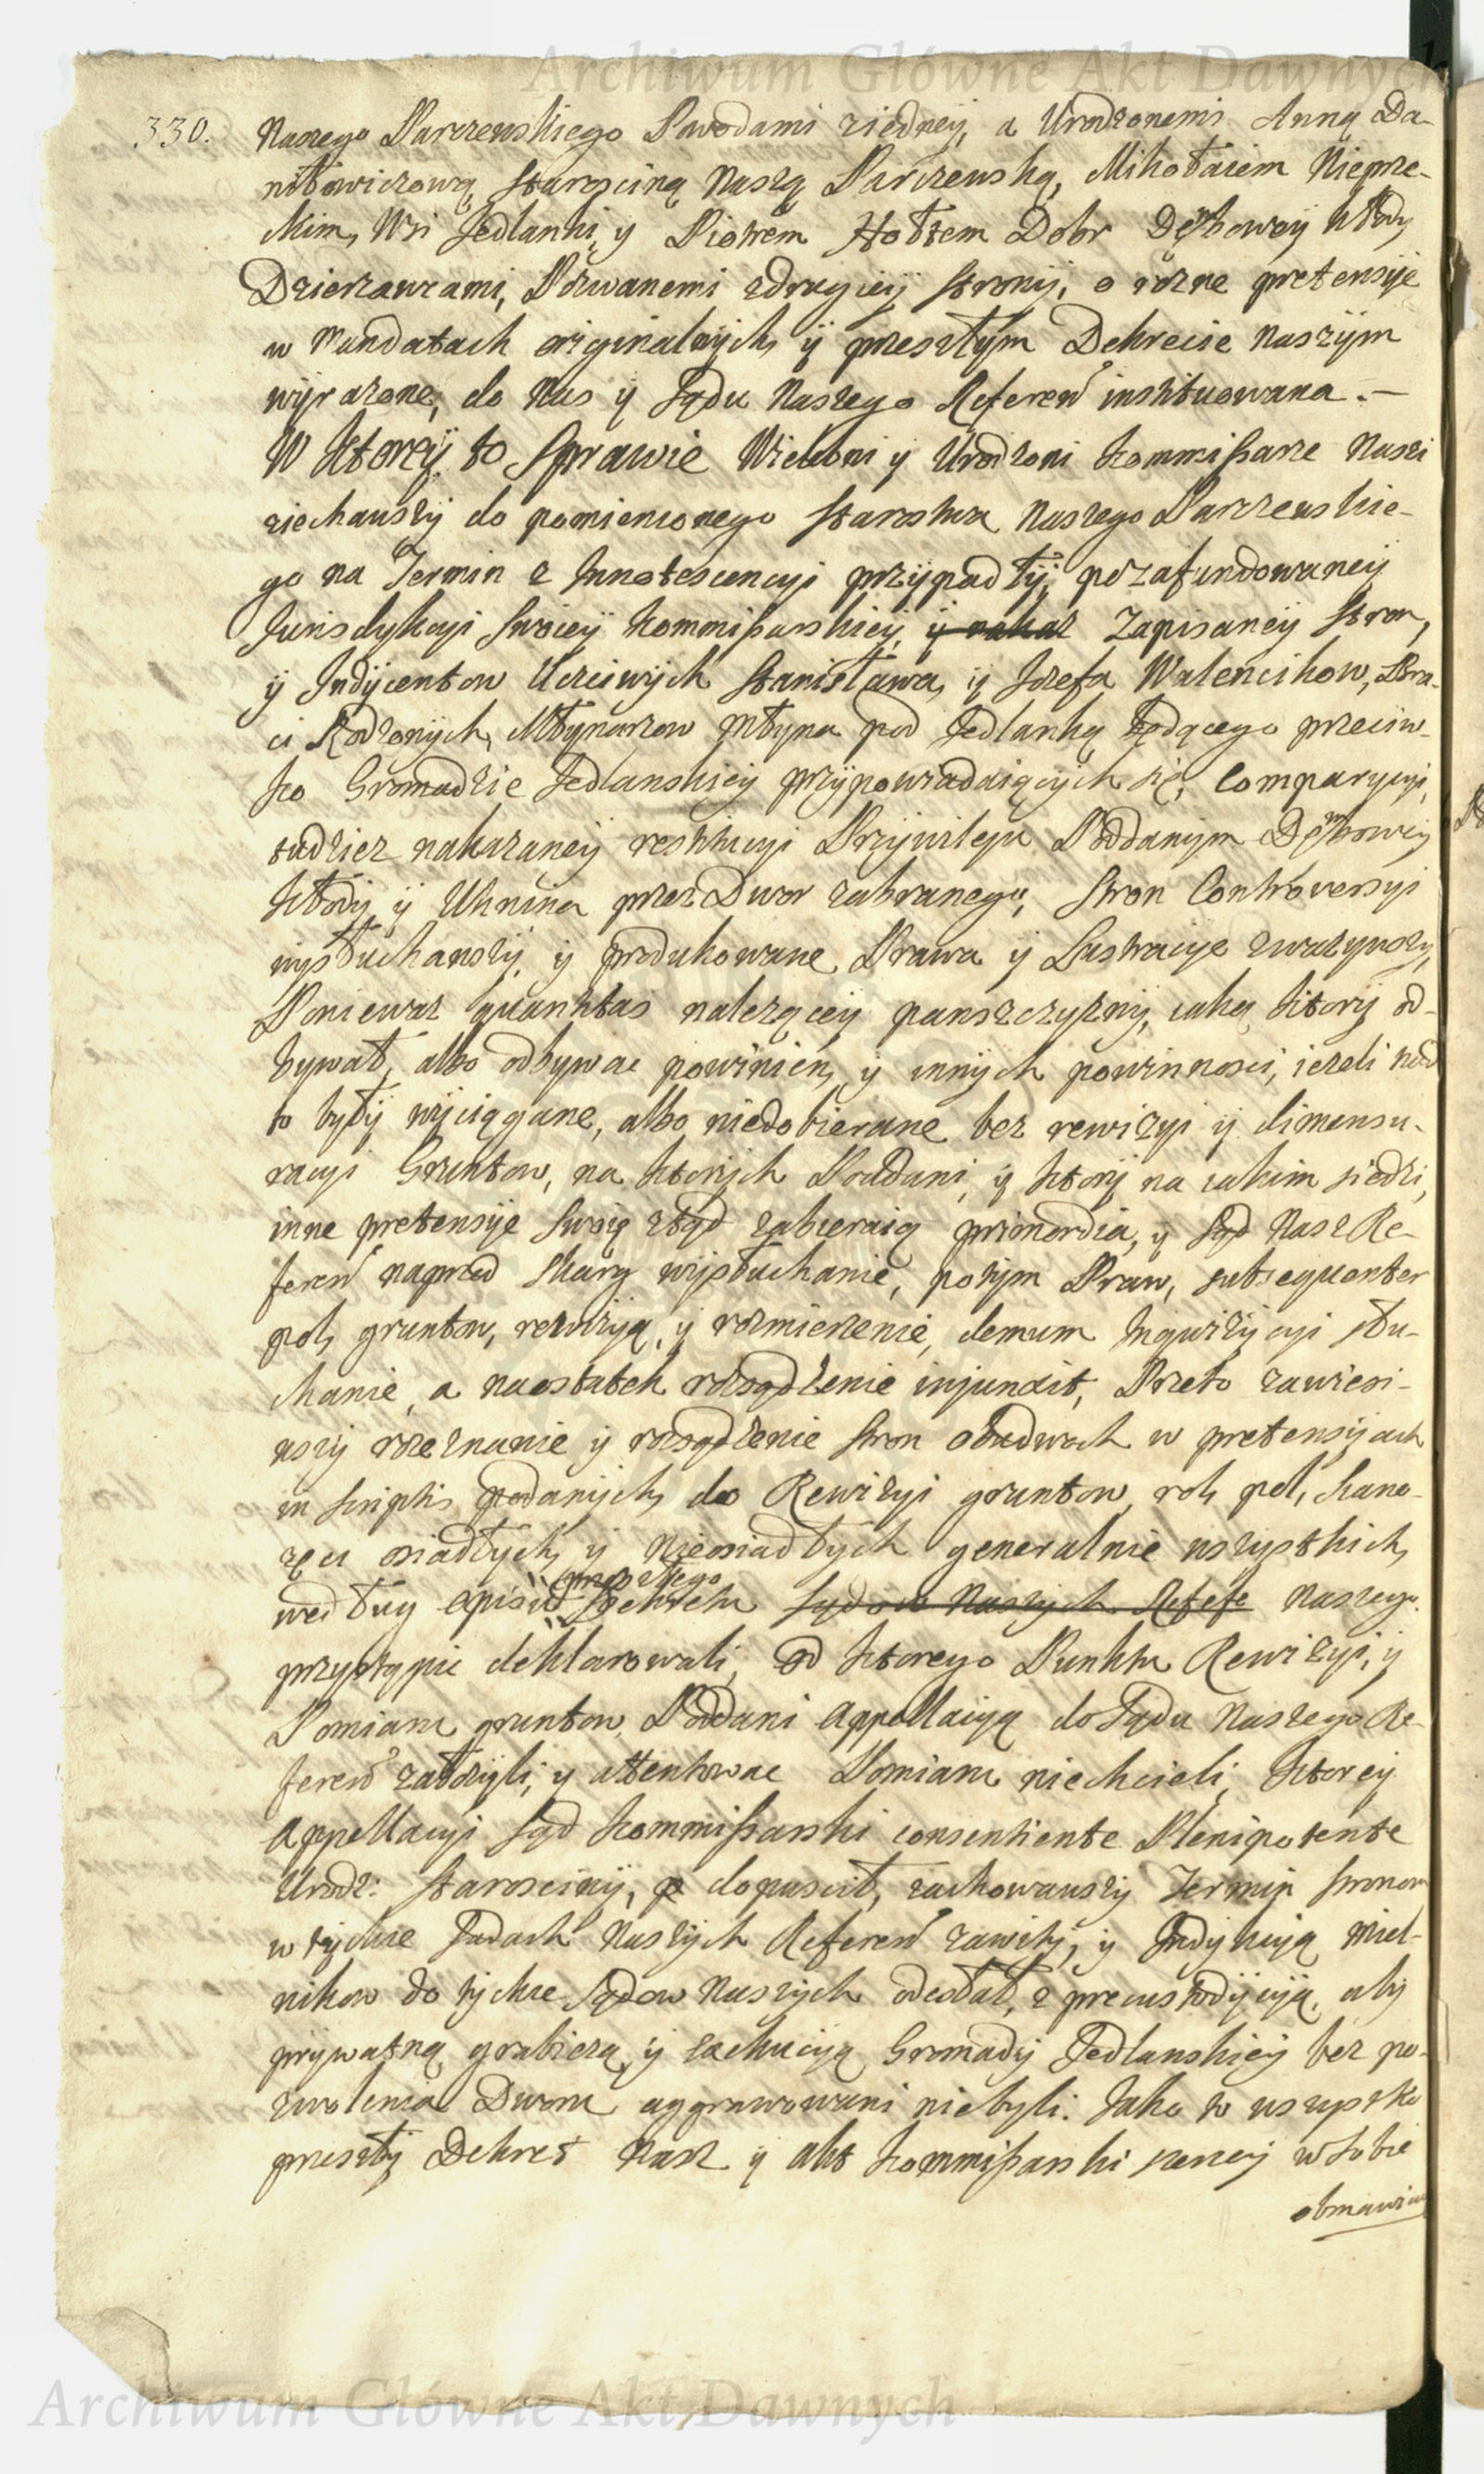 Archiwum Główne Akt Dawnych
330. Naszego Parczewskiego Powodami ziedney, a Urodzonemi Anną Da-
niłowiczową Starosciną Naszą Parczewską, Mikołaiem Niepre-
ckim, Wsi Jedlanki, y Piotrem Hołtem Dobr Dębowey Kłody
Dzierzawcami, Pozwanemi zdrugiey Strony, o rózne pretensye
w Mandatach originalnych, y przeszłym Dekrecie Naszym
wyrazone, do Nas y Sądu Naszego Referen instituowana.—
W Ktorey to Sprawie Wielebni y Urodzoni Kommissarze Nasi
ziechawszy do pomienionego Starostwa Naszego Parczewskie-
go na Termin z Innotescencyi przypadły, po zafundowaney
Jurisdykcyi Swoiey Kommissarskiey, y nakaz Zapisaney Stron,
y Indycentow Uczciwych Stanisława, y Jozefa Walencikow, Bra-
ci Rodzonych, Młynarzow Młyna pod Jedlanką będącego przeciw-
ko Gromadzie Jedlanskiey przypowiadaiących się, Comparycyi,
tudziez nakazaney restitucyi Przywileju Poddanym Dębowey
Kłody y Uhnina przez Dwor zabranego, Stron Controversyi
wysłuchawszy, y produkowane Prawa y Lustracye zwazywszy,
Poniewaz quantitas nalezącey panszczyzny, iaką ktory od-
bywał, albo odbywac powinien, y innych powinnosci, iezeli nad
to były wyciągane, albo niedobierane bez rewizyi y dimensu-
racyi Gruntow, na ktorych Poddani, y ktory na iakim siedzi,
inne pretensye Swoię ztąd zabieraią primordia, y Sąd Nasz Re-
feren naprzod Skarg wysłuchanie, potym Praw, subsequenter
pol, gruntow, rewizyą, y rozmierzenie, demum Inquizycyi słu-
chanie, a naostatek rozsądzenie injunxit, Przeto zawiesi-
wszy rozeznanie y rozsądzenie Stron obudwoch w pretensyach
in scriptis podanych, do Rewizyi gruntow, rol, pol,
osiadłych, y Nieosiadłych generalnie wszystkich,
przeszłego
według opisu Dekretu Sądow Naszych Refe Naszego
przystąpic deklarowali, od ktorego Punktu Rewizyi, y
Pomiaru gruntow, Poddani Appellacyą do Sądu Naszego Re-
feren załozyli, y attentowac Pomiaru niechcieli, Ktorey
Appellacyi Sąd Kommissarski consentiente Plenipotente
Urodz: Starosciny, dopuscił, zachowawszy Termin Stronom
w tychze Sądach Naszych Referen zawity, y Indykcyą Miel-
nikow do tychze Sądow Naszych odesłał, z precustodycyą, aby
prywatną grabiezą, y exekucyą Gromady Jedlanskiey bez po-
zwolenia Dworu aggrawowani niebyli. Jako to wszystko
przeszły Dekret Nasz y akt Kommissarski szerzey w Sobie
obmawia
Archiwum Główne Akt Dawnych